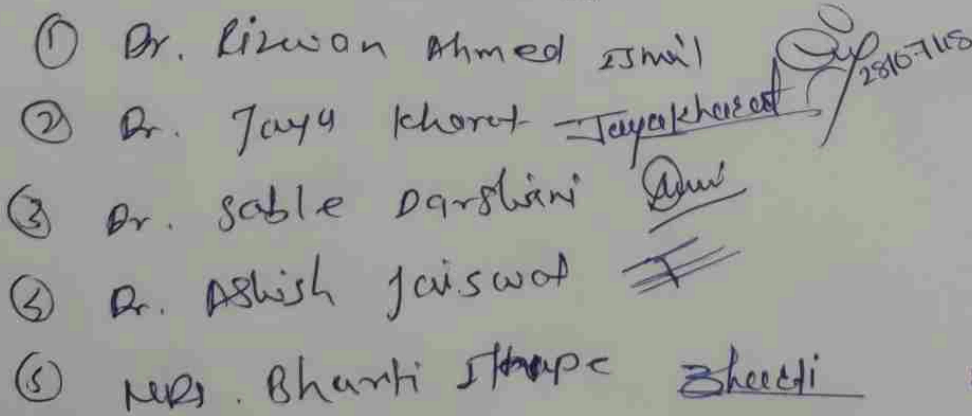 ① Dr. Rizwan Ahmed Ismail 28/07/18
② Dr. Jaya Kharat Jayakharat
③ Dr. Sable Darshani
④ Dr. Ashish Jaiswal
⑤ Mrs. Bharti Bharti